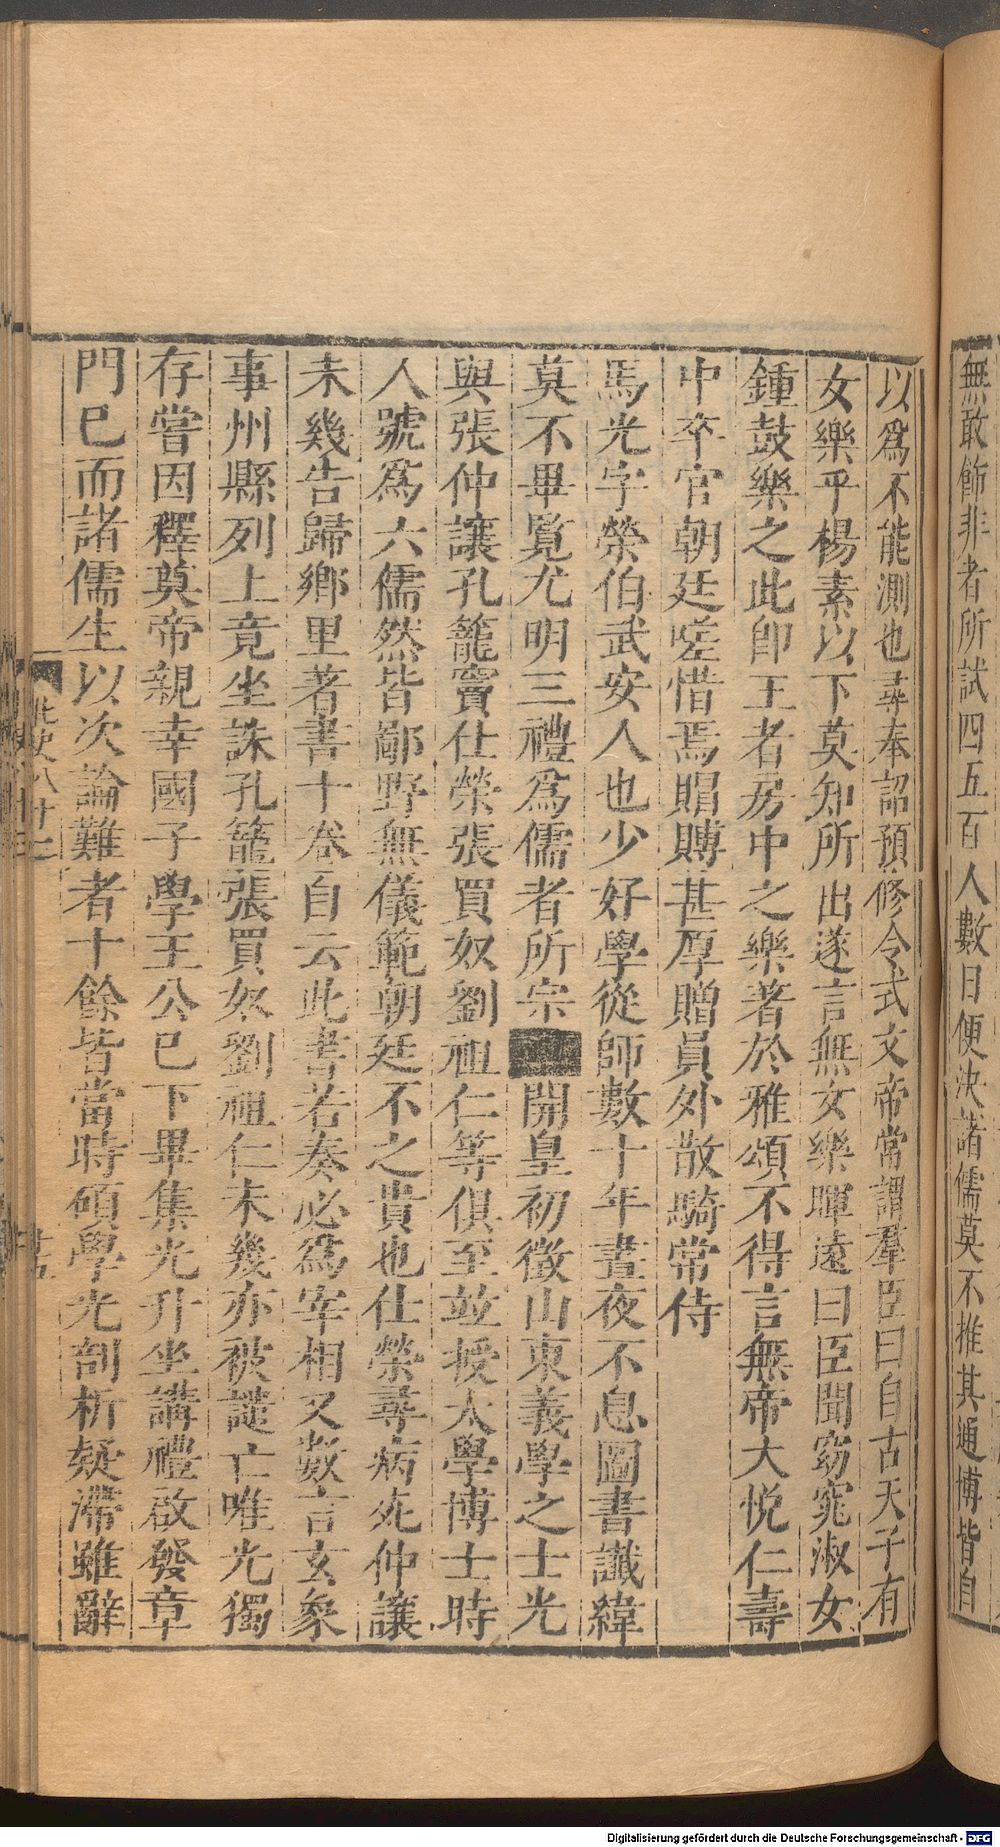 無敢飾非者所試四五百人數日便決諸儒莫不推其通博皆自
以爲不能測也尋奉詔預修令式文帝常謂羣臣曰自古天子有
女樂乎楊素以下莫知所出遂言無女樂暉遠曰臣聞窈窕淑女
鍾鼓樂之此卽王者房中之樂著於雅頌不得言無帝大悅仁壽
中卒官朝廷嗟惜焉賵賻甚厚贈員外散騎常侍
馬光字榮伯武安人也少好學從師數十年晝夜不息圖書讖緯
莫不畢覽尤明三禮爲儒者所宗開皇初徵山東義學之士光
與張仲讓孔籠竇仕榮張買奴劉祖仁等俱至並授太學博士時
人號爲六儒然皆鄙野無儀範朝廷不之貴也仕榮尋病死仲讓
未幾告歸鄉里著書十卷自云此書若奏必爲宰相又數言玄象
事州縣列上竟坐誅孔籠張買奴劉祖仁未幾亦被譴亡唯光獨
存嘗因釋奠帝親幸國子學王公已下畢集光升坐講禮啟發章
門已而諸儒生以次論難者十餘皆當時碩學光剖析疑滯雖辭
史八十二
Digitalisierung gefördert durch die Deutsche Forschungsgemeinschaft - DFG